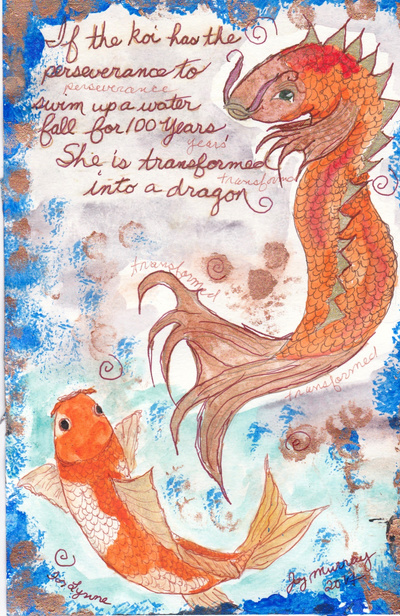 If the koi has the
perseverance to
perseverance
swim up a water
fall for 100 Years,
Years
She is transformed
transformed
into a dragon
transformed
transformed
Joy Murray
2014